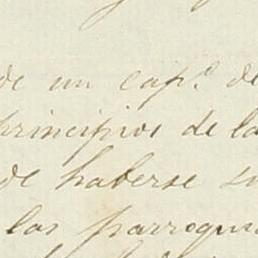 de un cap.º de
principios de la
de haberse su
las parroquia